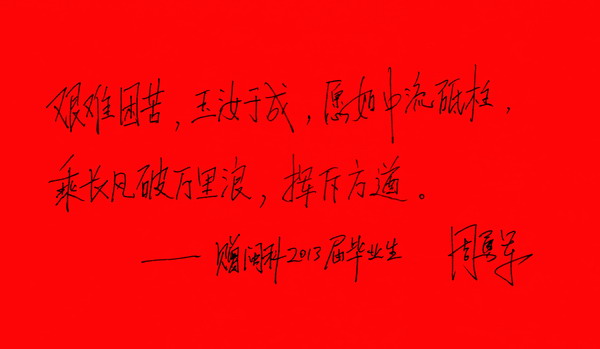 艰难困苦，玉汝于成，愿如中流砥柱，
乘长风破万里浪，挥斥方遒。
——赠闽科2013届毕业生 周勇军